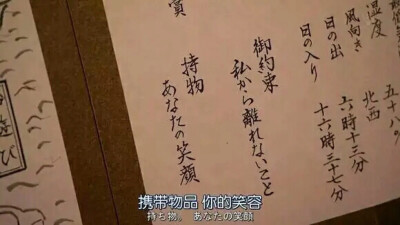 湿度　五十八%
風向き　北西
日の出　六時十三分
日の入り　十六時三十七分
御約束
私から離れないこと
持物
あなたの笑顔
遊び
携带物品 你的笑容
持ち物。 あなたの笑顔